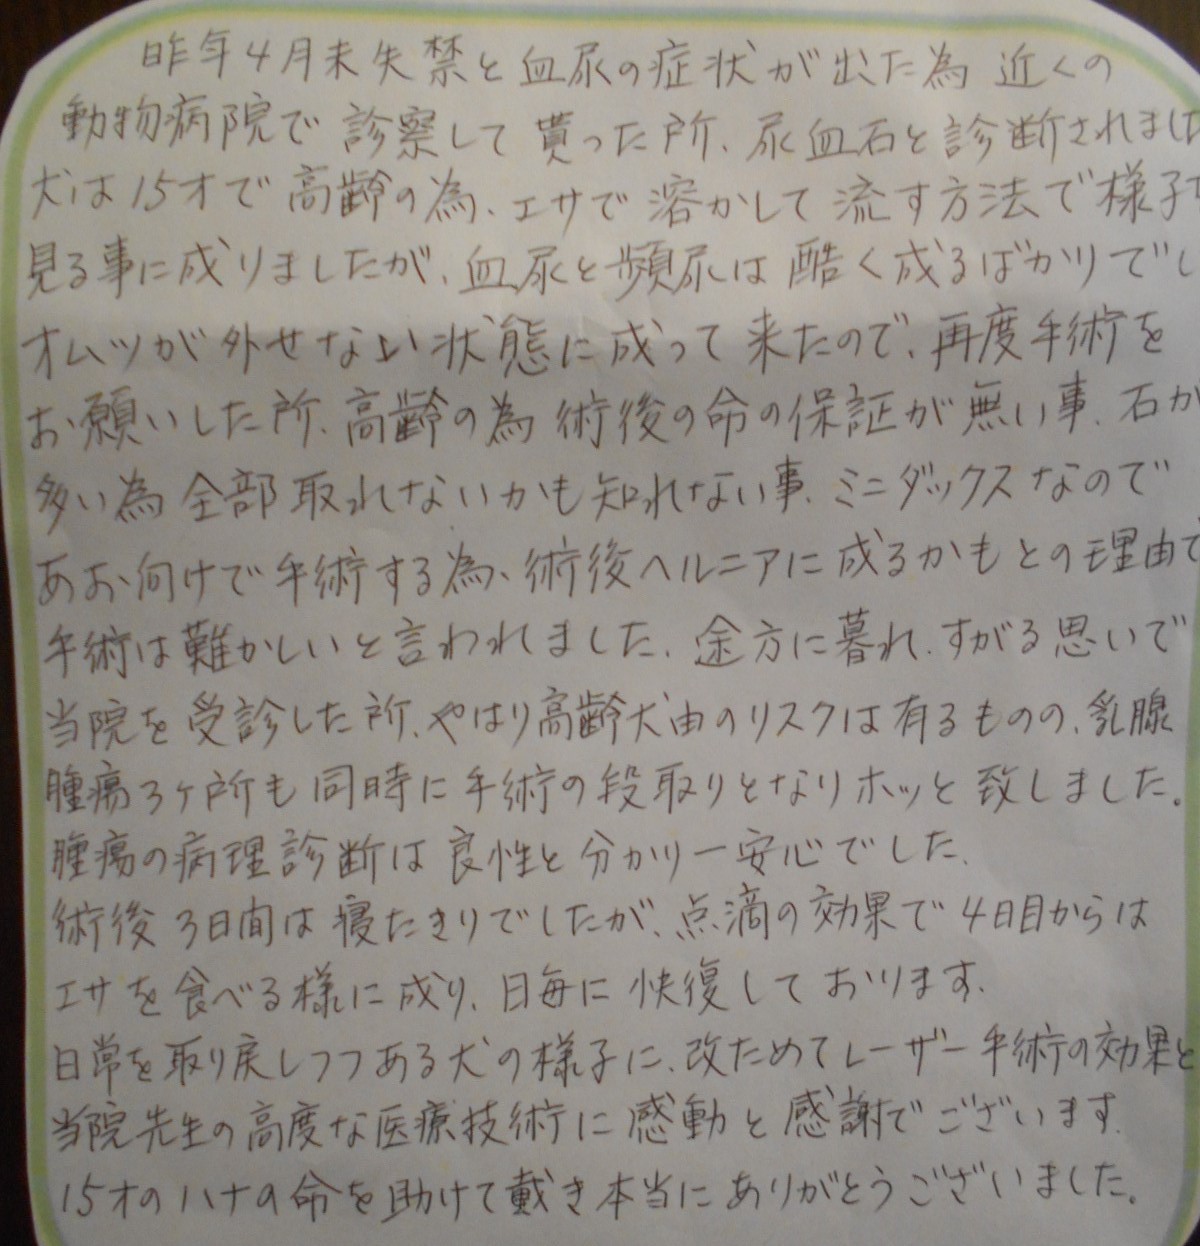 昨年4月末失禁と血尿の症状が出た為 近くの
動物病院で診察して貰った所、尿血石と診断されました
犬は15才で高齢の為、エサで溶かして流す方法で様子
見る事に成りましたが、血尿と頻尿は酷く成るばかりでし
オムツが外せない状態に成って来たので、再度手術を
お願いした所、高齢の為 術後の命の保証が無い事、石が
多い為 全部取れないかも知れない事、ミニダックスなので
あお向けで手術する為、術後ヘルニアに成るかもとの理由で
手術は難かしいと言われました、途方に暮れ、すがる思いで
当院を受診した所、やはり高齢犬由のリスクは有るものの、乳腺
腫瘍3ヶ所も同時に手術の段取りとなりホッと致しました。
腫瘍の病理診断は良性と分かり一安心でした、
術後3日間は寝たきりでしたが、点滴の効果で4日目からは
エサを食べる様に成り、日毎に快復しております、
日常を取り戻しつつある犬の様子に、改ためてレーザー手術の効果と
当院先生の高度な医療技術に感動と感謝でございます、
15才のハナの命を助けて戴き本当にありがとうございました。